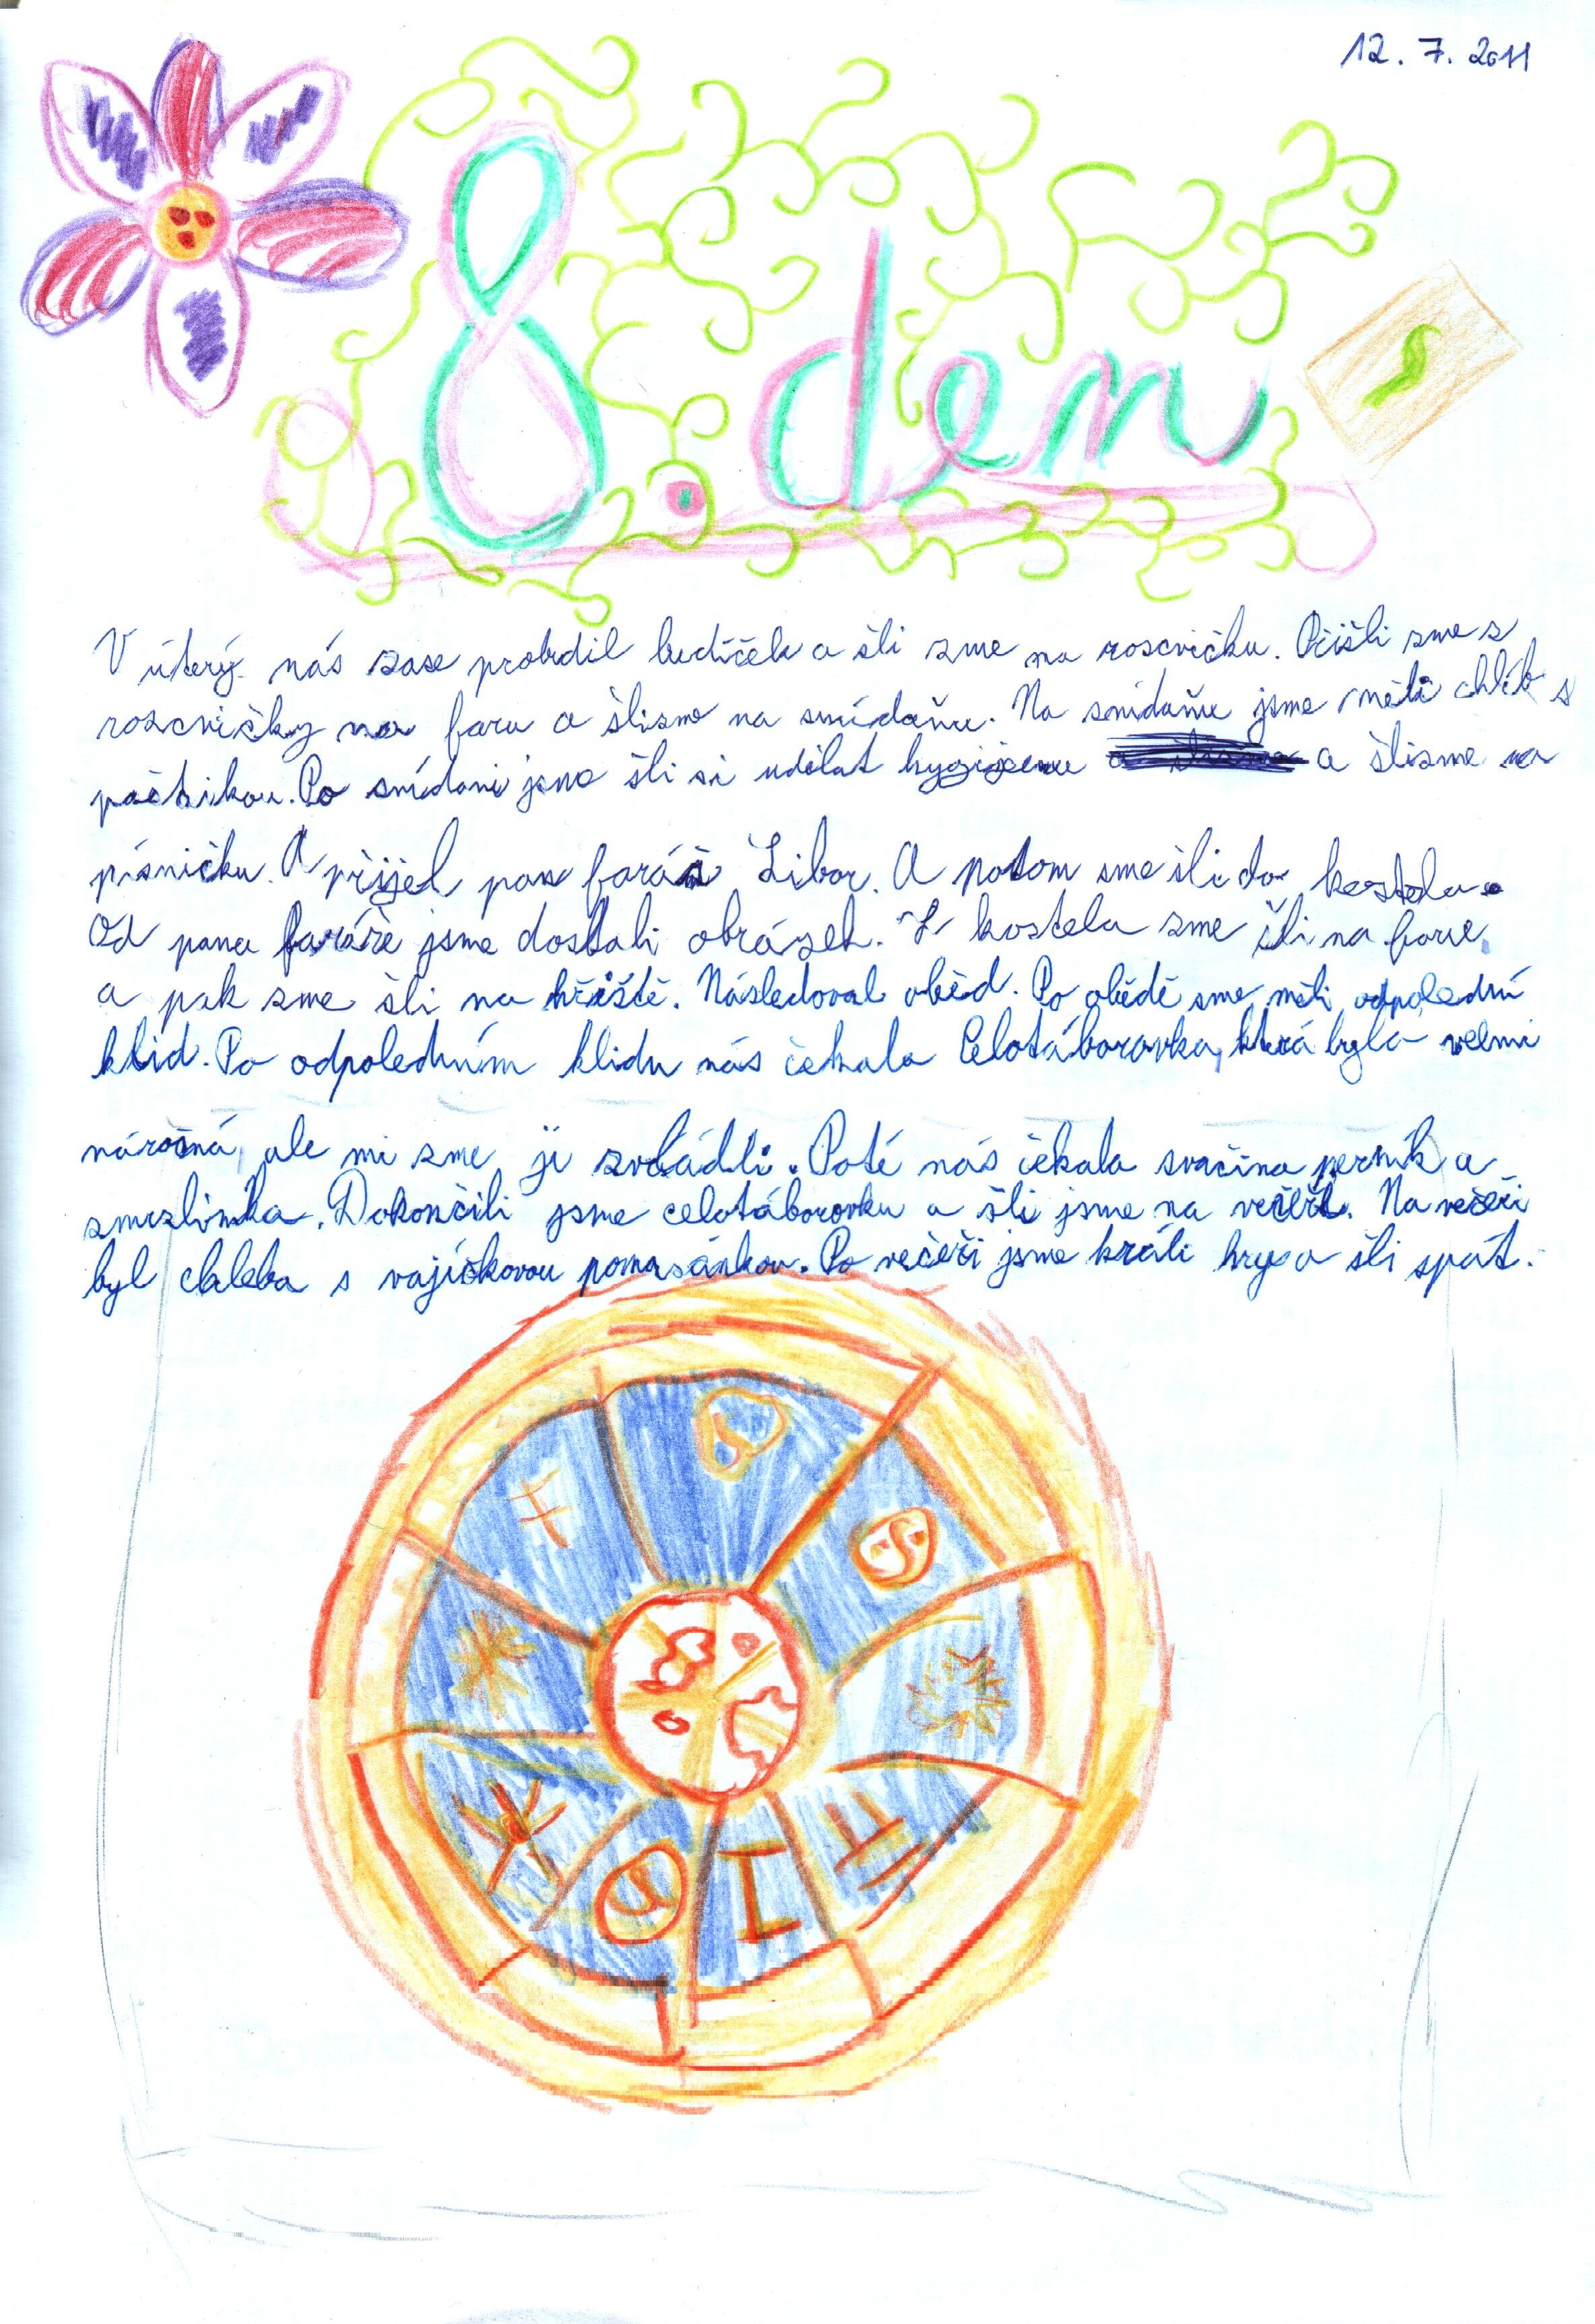 12. 7. 2011
8. den
V úterý nás zase probudil budíček a šli sme na roscvičku. Přišli sme z
rozcvičky na faru a šlisme na snídaňu. Na snídaňu jsme měli chléb s
paštikou. Po snídani jsme šli si udělat hygijenu a šlisme na
písničku. A přijel pan farář Libor. A potom sme šli do kostela.
Od pana faráře jsme dostali obrázek. Z kostela sme šli na faru,
a pak sme šli na hřiště. Následoval oběd. Po obědě sme měli odpolední
klid. Po odpoledním klidu nás čekala Celotáborovka, která byla velmi
náročná, ale mi sme ji zvládli. Poté nás čekala svačina perník a
zmrzlinka. Dokončili jsme celotáborovku a šli jsme na večeři. Na večeři
byl chleba s vajíčkovou pomazánkou. Po večeři jsme hráli hry a šli spát.